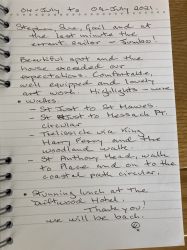 04-July to 09-July 2021.
Stephen, Sue, Gail and at
the last minute the
errant sailor - Jumbo!
Beautiful spot and the
house exceeded our
expectations. Comfortable,
well equipped and lovely
art work. Highlights - were
• walks.
- St Just to St Mawes
- St Just to Messack Pt.
circular
- Trelissick via King
Harry Ferry and the
woodland walk
- St Anthony Head, walk
to Place and on to the
coastal path circular.
• Stunning lunch at the
Driftwood Hotel.
Thank you!
we will be back.